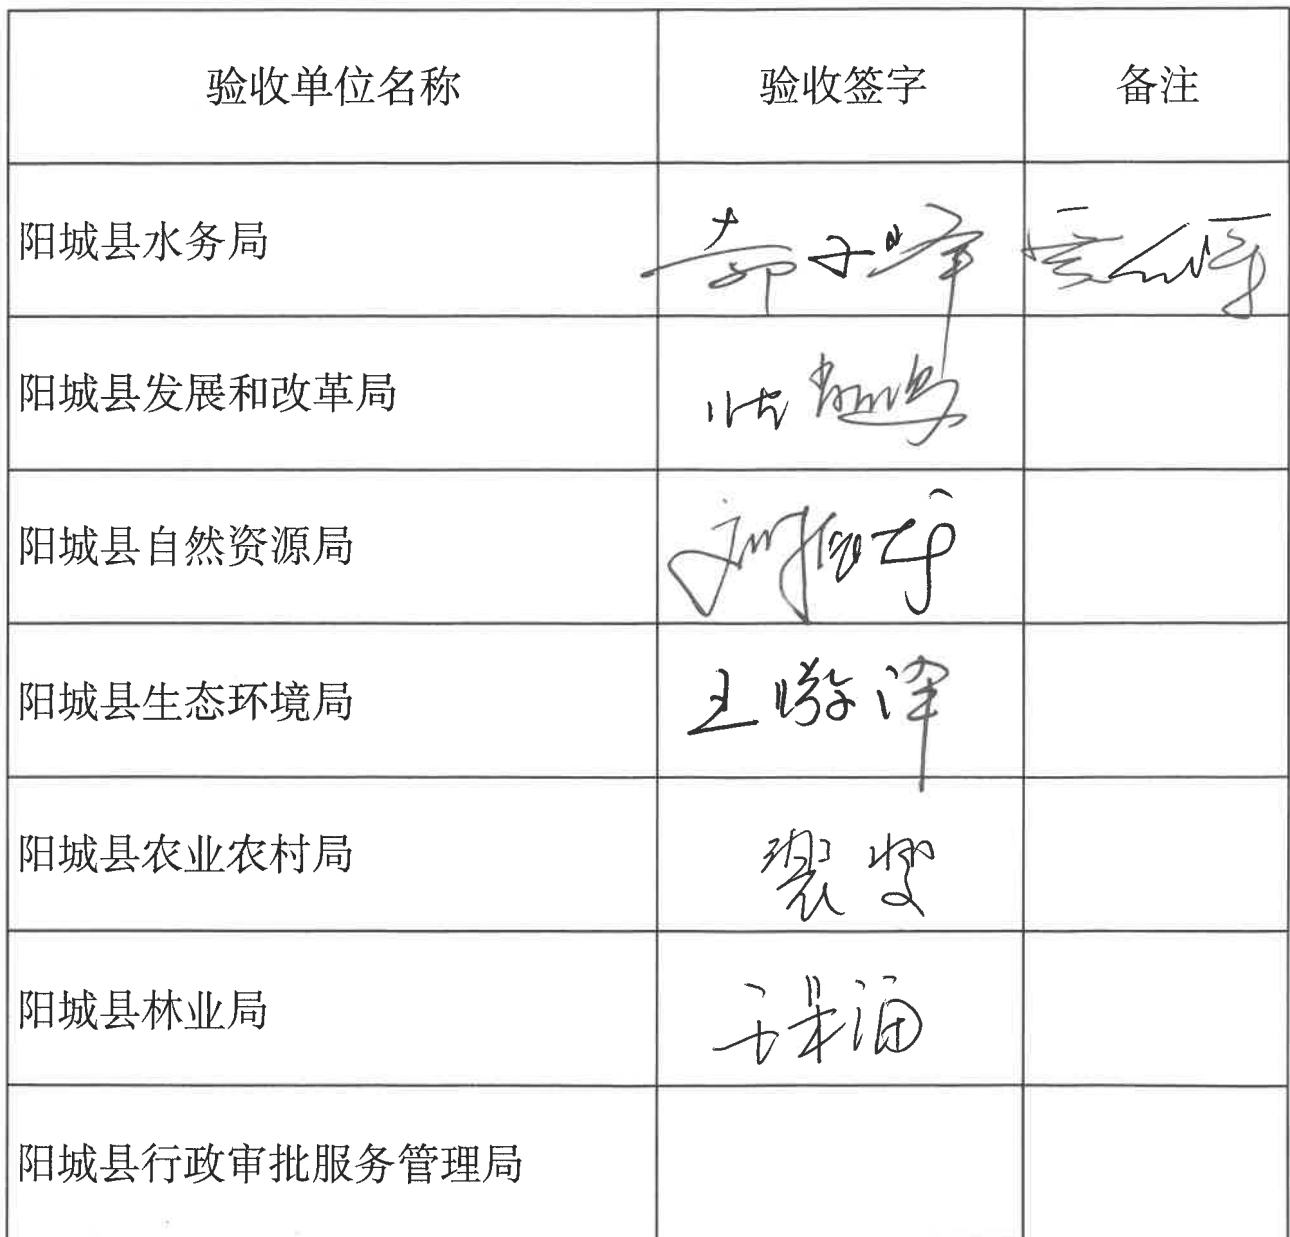 验收单位名称 验收签字 备注
阳城县水务局
阳城县发展和改革局
阳城县自然资源局
阳城县生态环境局
阳城县农业农村局
阳城县林业局
阳城县行政审批服务管理局